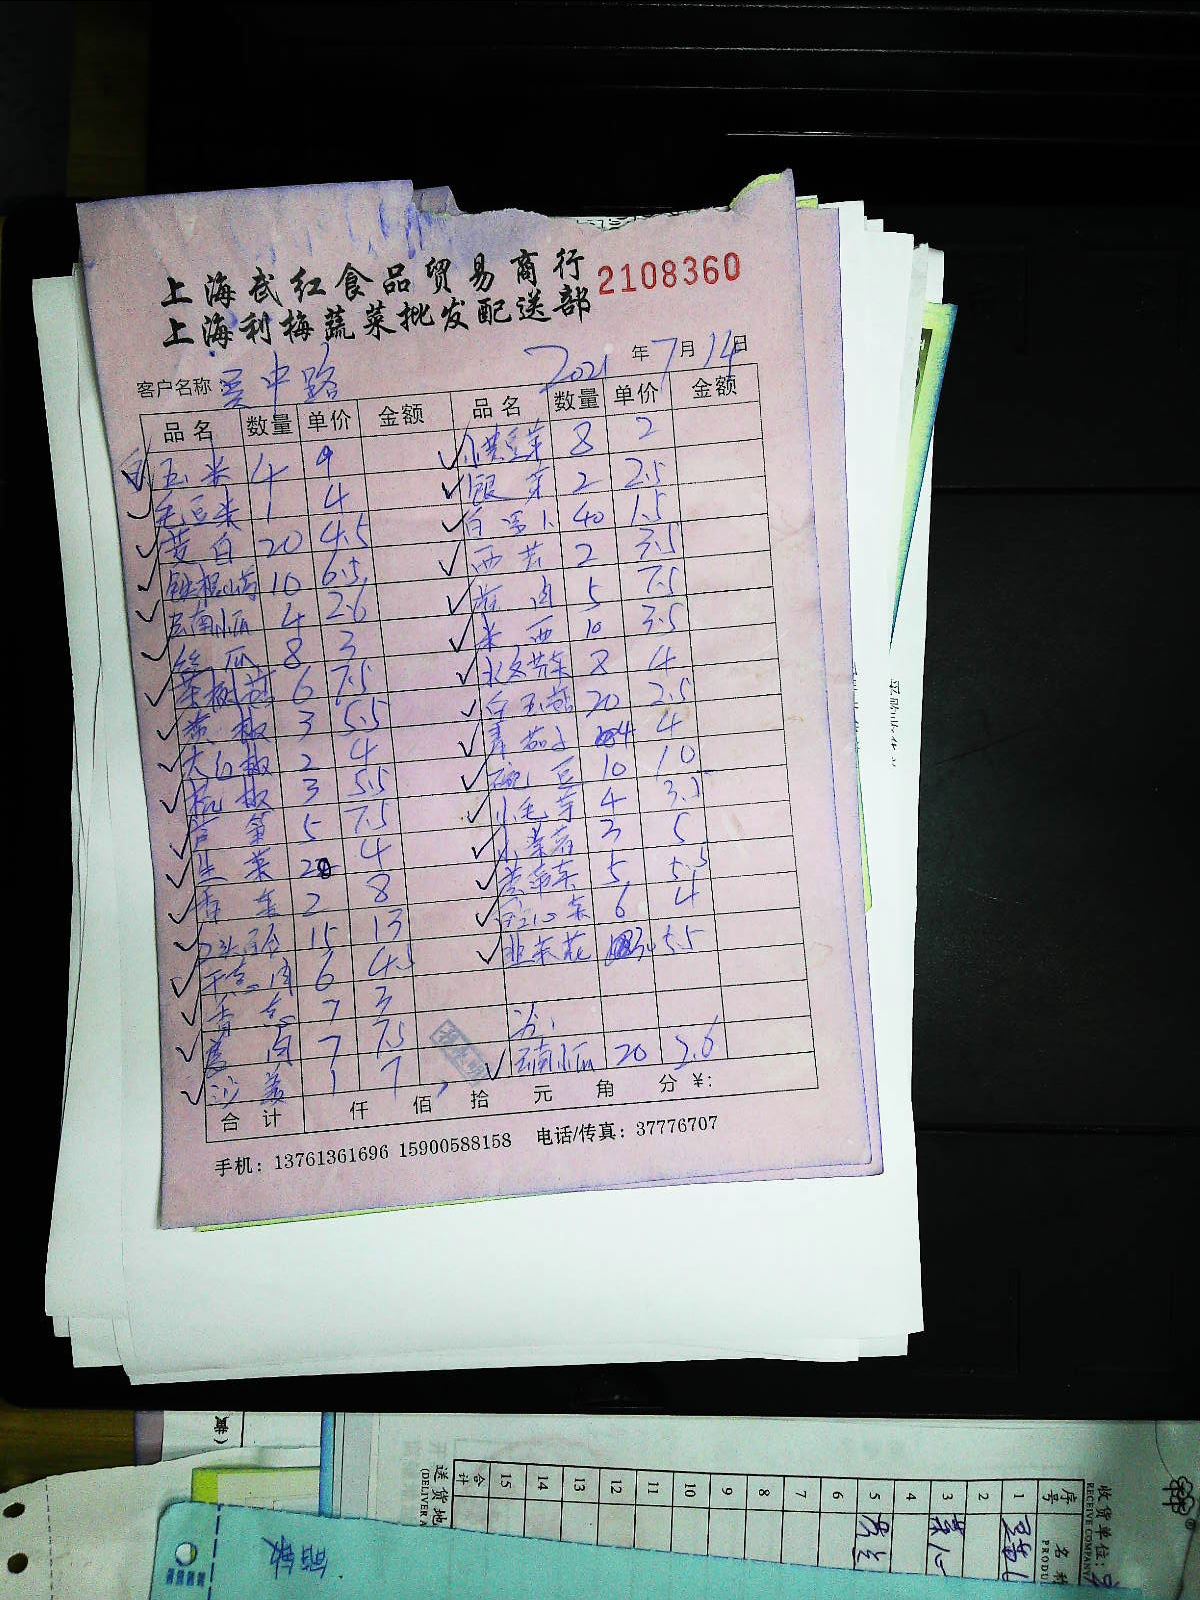 上海武红食品贸易商行
上海利梅蔬菜批发配送部
2108360
客户名称 吴中路 2021年7月14日
品名 数量 单价 金额 品名 数量 单价 金额
玉米 4 9 小黄豆芽 8 2
毛豆米 1 4 银芽 2 2.5
茭白 20 4.5 白萝卜 40 1.5
铁棍山药 10 6.5 西芹 2 3.5
云南小瓜 4 2.6 肉 5 7.5
丝瓜 8 3 米西 10 3.5
茶树菇 6 7.5 8 4
椒 3 5.5 白玉菇 20 2.5
大红椒 2 4 青茄子 4 4
杭椒 3 5.5 豌豆 10 10
芦笋 5 7.5 小毛芋 4 3.5
生菜 20 4 3 5
香菜 2 8 5 5.5
15 13 菜 6 4
干葱肉 6 4.5 韭菜花 3 5.5
青葱 7 3
姜肉 7 7.5
沙姜 1 7 云南小瓜 20 2.6
合计 仟 佰 拾 元 角 分 ¥:
手机: 13761361696 15900588158 电话/传真: 37776707
收货单位:
RECEIVE COMPANY
序号 名称
PRODU
1
2
3 菜心
4
5
6
7
8
9
10
11
12
13
14
15
合计
送货地
(DELIVER A